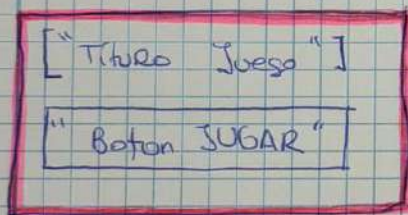 ["Tituro Juego"]
"Boton JUGAR"